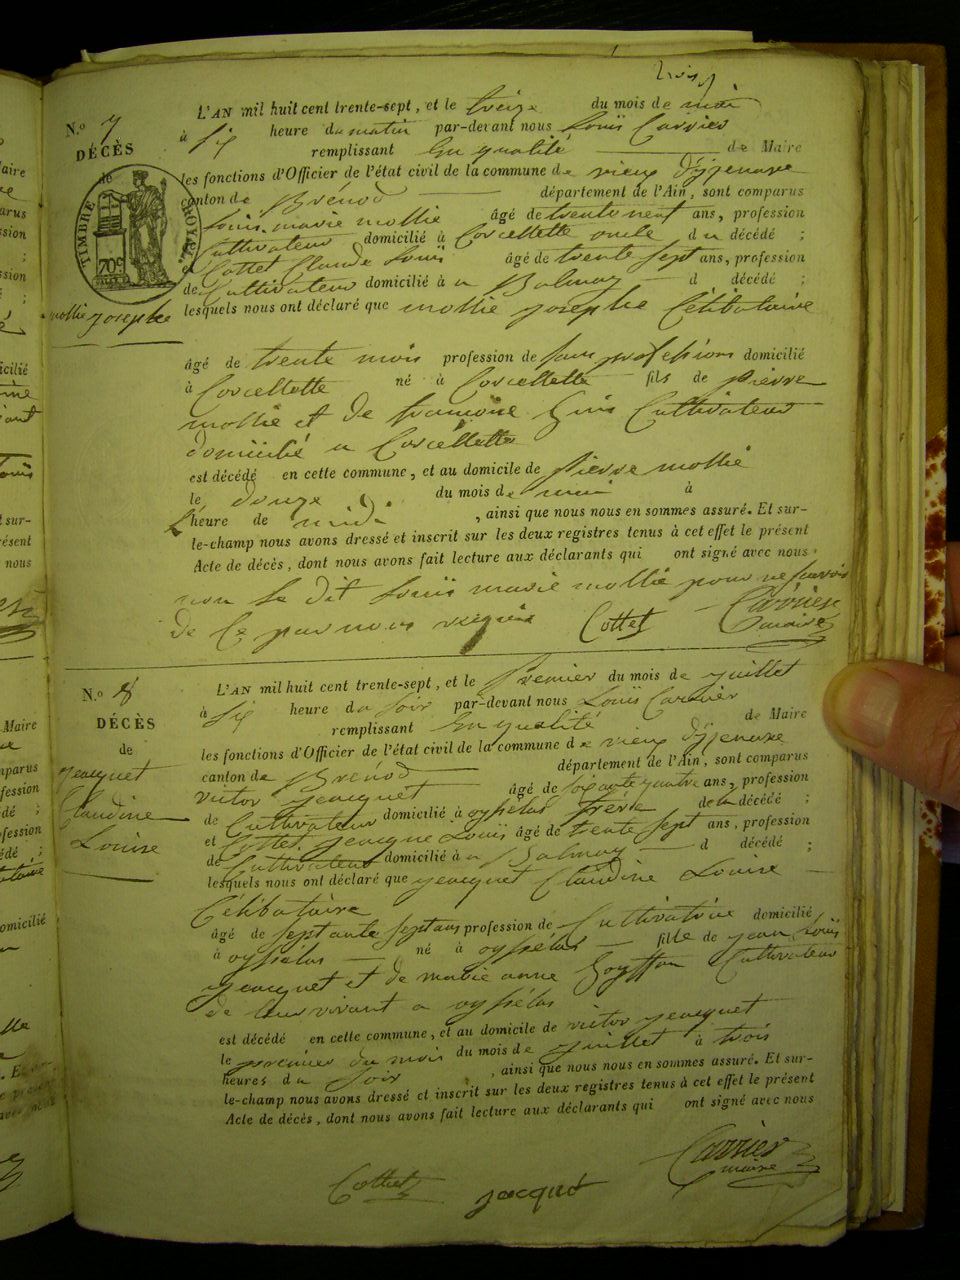 N.o 7
DÉCÈS
de
TIMBRE ROYAL
70c
mollie josephe
L'AN mil huit cent trente-sept, et le treize du mois de mai
à six heure du matin par-devant nous Louis Carrier
remplissant en qualité de Maire
les fonctions d'Officier de l'état civil de la commune de vieux d'izenave
canton de Brénod département de l'Ain, sont comparus
Louis marie mollie âgé de trente neuf ans, profession
Cultivateur domicilié à Corcellette oncle du décédé ;
et Cottet Claude Louis âgé de trente sept ans, profession
de Cultivateur domicilié à a Balmay d décédé ;
lesquels nous ont déclaré que mollie josephe Célibataire
âgé de trente mois profession de sans profession domicilié
à Corcellette né à Corcellette fils de pierre
mollie et de francoise Cultivateur
domicilié a Corcellette
est décédé en cette commune, et au domicile de pierre mollie
le douze du mois de mai à
L'heure de midi , ainsi que nous nous en sommes assuré. Et sur-
le-champ nous avons dressé et inscrit sur les deux registres tenus à cet effet le présent
Acte de décès, dont nous avons fait lecture aux déclarants qui ont signé avec nous
non le dit Louis marie mollie pour ne savoir
de ce par nous requis Cottet Carrier
maire
N.o 8
DÉCÈS
de
jeacquet
Claudine
Louise
L'AN mil huit cent trente-sept, et le premier du mois de juillet
à six heure du soir par-devant nous Louis Carrier
remplissant en qualité de Maire
les fonctions d'Officier de l'état civil de la commune de vieux d'izenave
canton de Brénod département de l'Ain, sont comparus
victor jeacquet âgé de soixante quatre ans, profession
de Cultivateur domicilié à oysselas frère de la décédé ;
et Cottet jeacque Louis âgé de trente sept ans, profession
de Cultivateur domicilié à a Balmay d décédé ;
lesquels nous ont déclaré que jeacquet Claudine Louise
Célibataire
âgé de septante sept ans profession de Cultivatrice domicilié
à oysselas né à oysselas fille de jean Louis
jeacquet et de marie anne Cultivateur
de leur vivant a oysselas
est décédé en cette commune, et au domicile de victor jeacquet
le premier du mois du mois de juillet à trois
heures du soir , ainsi que nous nous en sommes assuré. Et sur-
le-champ nous avons dressé et inscrit sur les deux registres tenus à cet effet le présent
Acte de décès, dont nous avons fait lecture aux déclarants qui ont signé avec nous
Carrier
maire
Cottet jacquet